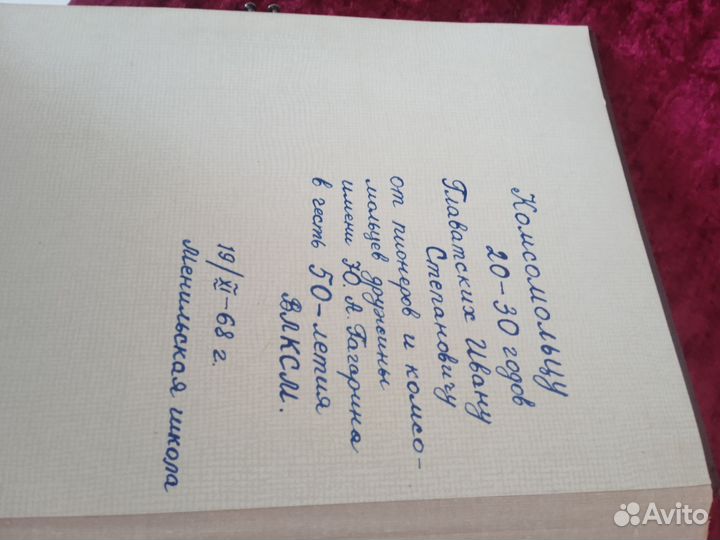 Комсомольцу
20-30 годов
Главатских Ивану
Степановичу
от пионеров и комсо-
мольцев дружины
имени Ю. А. Гагарина
в честь 50-летия
ВЛКСМ.
19/XI-68 г.
Менильская школа
Avito